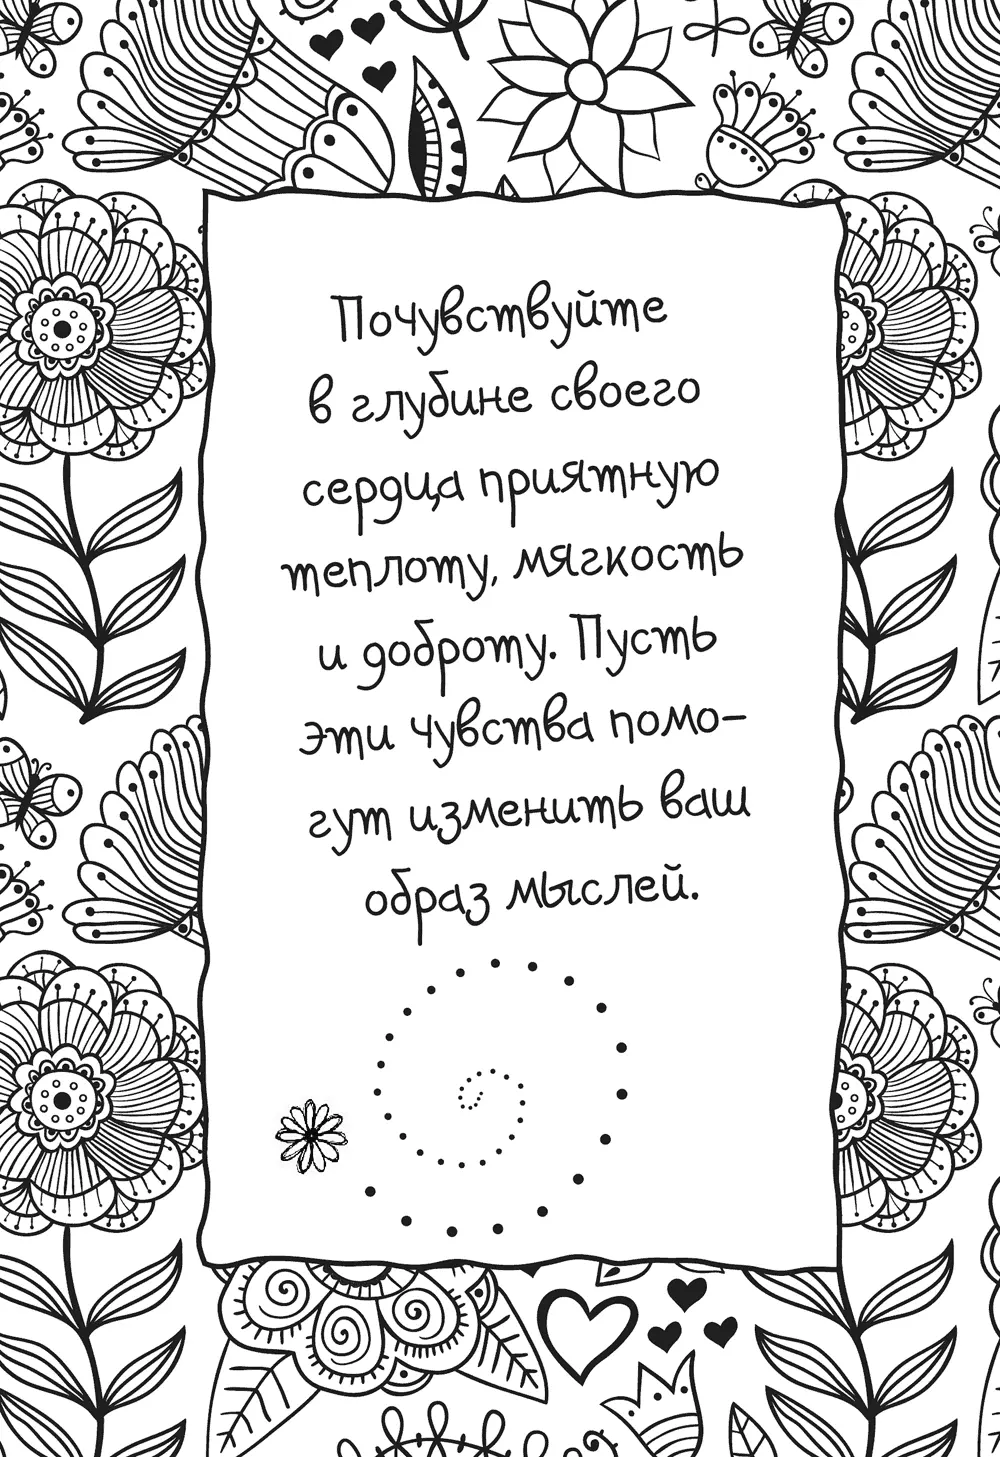 Почувствуйте
в глубине своего
сердца приятную
теплоту, мягкость
и доброту. Пусть
эти чувства помо-
гут изменить ваш
образ мыслей.